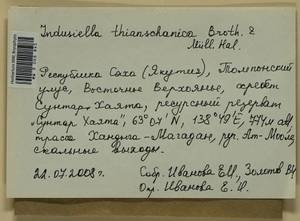 Indusiella thianschanica Broth. &
Müll. Hal.
Республика Саха (Якутия), Томпонский
улус, Восточное Верхоянье, хребет
Сунтар-Хаята, ресурсный резерват
„Сунтар Хаята", 63°07' N, 138° E, м
трасса Хандыга-Магадан, руч.
скальные выходы.
22.07.2008г. Собр. Иванова Е.И., Золотов В.И.
Опр. Иванова Е.И.